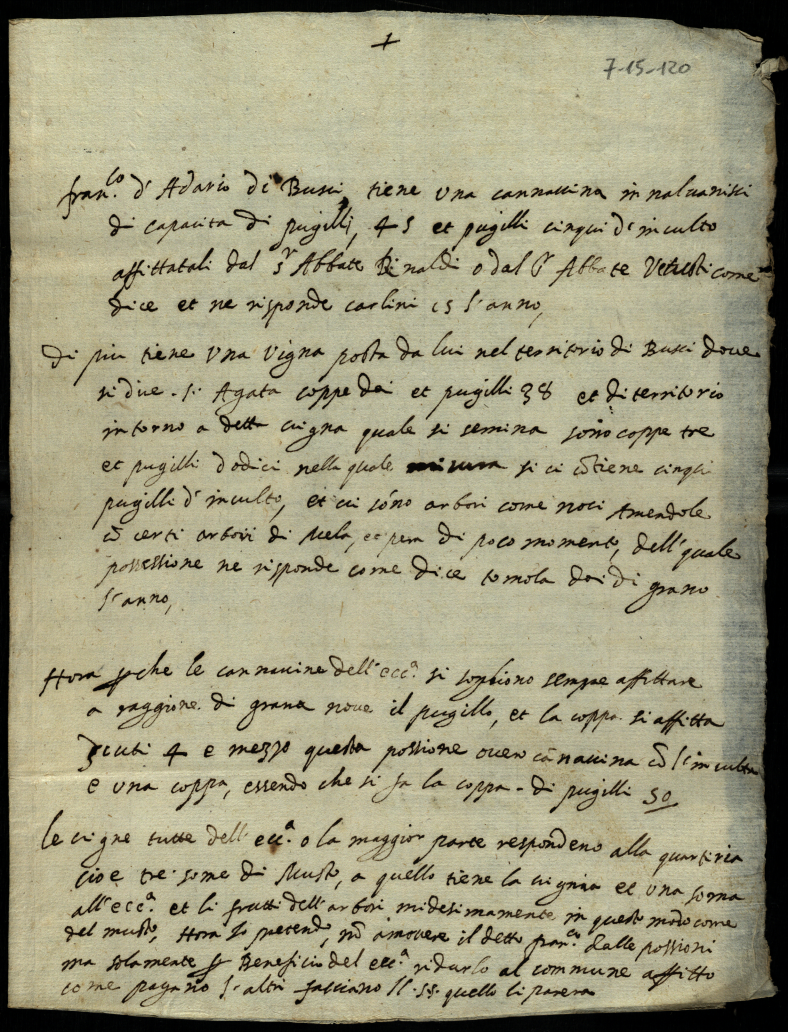 +
7-15-120
fran.co d'Adario di Bussi tiene una cannavina in
di capacita di pugilli, 45 et pugilli cinqui d'inculto
affittatali dal Sr Abbate Rinaldi o dal Abbate Vetusti come
dice et ne risponde carlini 15 l'anno,
di piu tiene una vigna posta da lui nel territorio di Bussi dove
si dice . S. Agata coppe doi et pugilli 38 et di territorio
intorno a detta vigna quale si semina sono coppe tre
et pugilli dodici nella quale misura si ci cōtiene cinqui
pugilli d'inculto, et ci sono arbori come noci Amendole
cō certi arbori di Mela, et pera di poco momento, dell'quale
possessione ne risponde come dice tomola doi di grano
l'anno,
Hora perche le cannavine dell'ecc.a si sogliono sempre affittare
a raggione di grana nove il pugillo, et la coppa si affitta
scuti 4 e mezzo questa possione overo cānavina cō l'inculto
e una coppa, essendo che si fa la coppa di pugilli 50
le vigne tutte dell'ecc.a o la maggior parte respondeno alla quartiria
cioe tre some di Musto, a quello tiene la vignia et una soma
all'ecc.a et li frutti dell'arbori midesimamente in questo modo come
del musto, Hora Io pretendo, nō amovere il detto fran.co dalle possioni
ma solamente per Beneficio del ecc.a ridurlo al commune affitto
come pagano l'altri facciano ll. ss. quello li parera